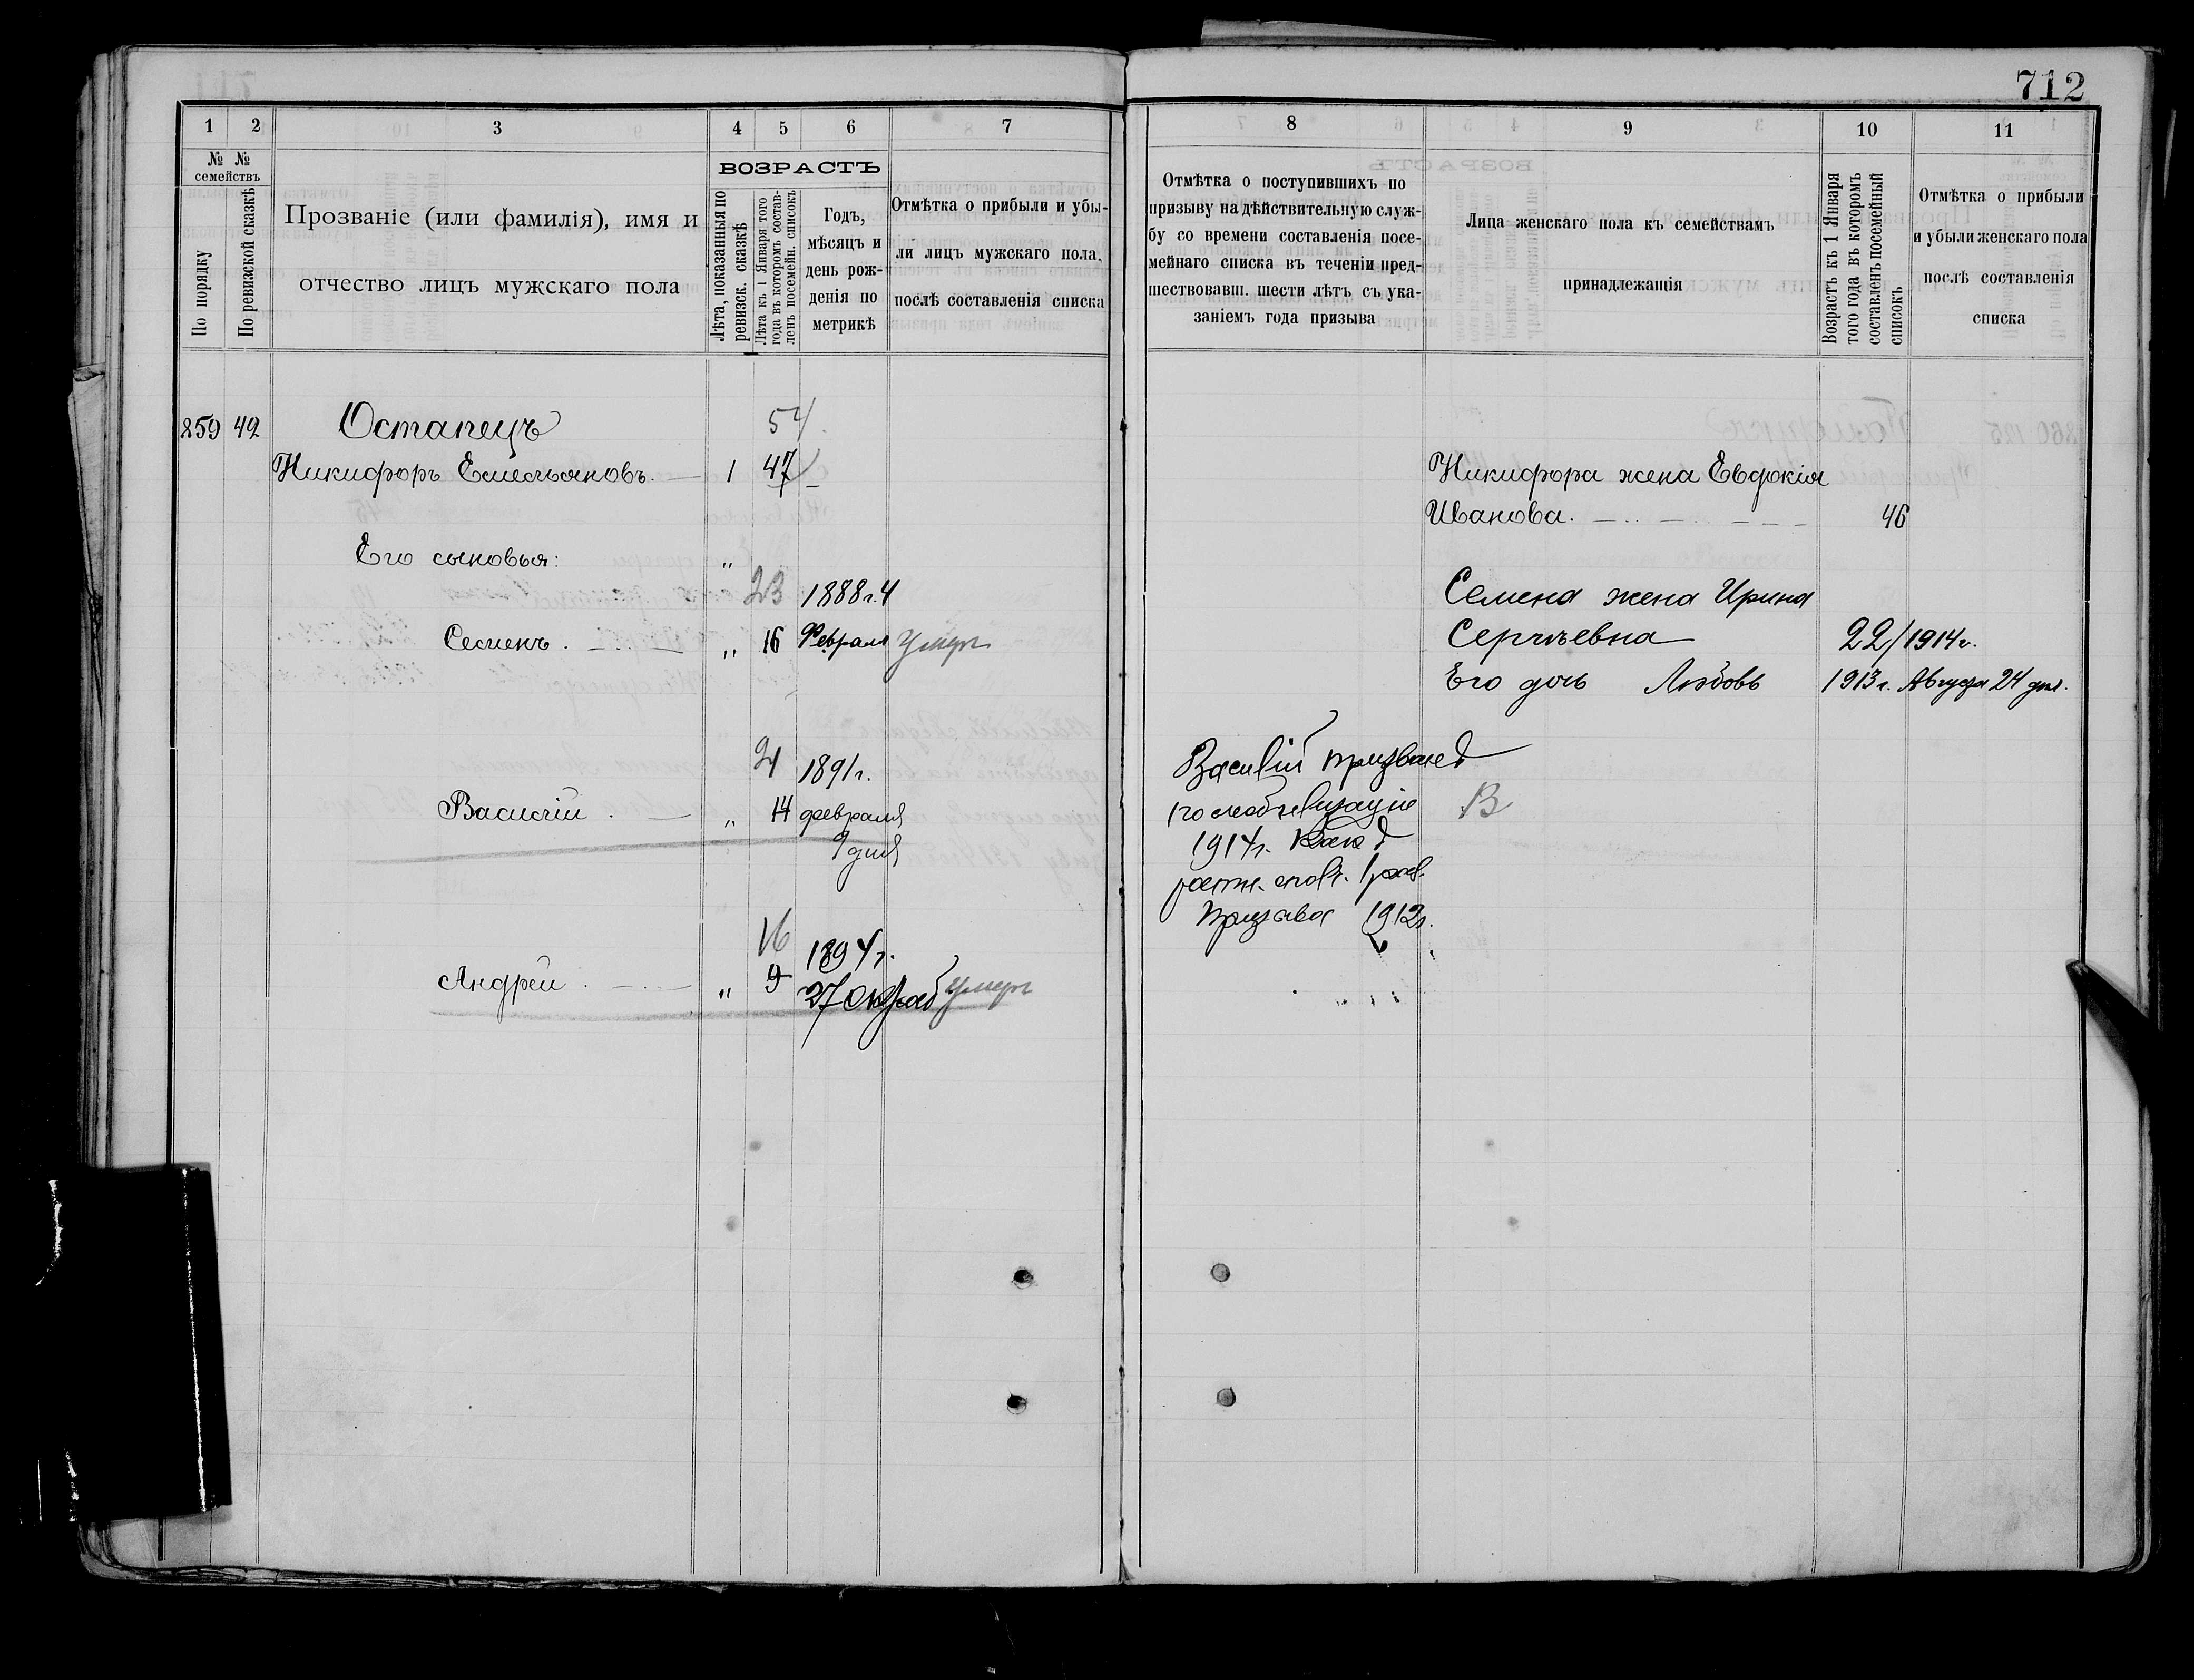 712
1 2 3 4 5 6 7
№ № семействъ
По порядку
По ревизской сказкѣ
Прозваніе (или фамилія), имя и
отчество лицъ мужскаго пола
ВОЗРАСТЪ
Лѣта, показанныя по
ревизск. сказкѣ
Лѣта къ 1 Января того
года въ которомъ состав-
ленъ посемейн. списокъ
Годъ,
мѣсяцъ и
день рож-
денія по
метрикѣ
Отмѣтка о прибыли и убы-
ли лицъ мужскаго пола,
послѣ составленія списка
859 42 Остапецъ 54
Никифоръ Емельяновъ. 1 47
Его сыновья: "
23 1888 г. 4
Семенъ. " 16 Февраля умеръ
21 1891 г.
Василій. " 14 февраля
9 дня
16 1894 г.
Андрей. " 9 27 умеръ
8 9 10 11
Отмѣтка о поступившихъ по
призыву на дѣйствительную служ-
бу со времени составленія посе-
мейнаго списка въ теченіи пред-
шествовавш. шести лѣтъ съ ука-
заніемъ года призыва
Лица женскаго пола къ семействамъ
принадлежащія
Возрастъ къ 1 Января
того года въ которомъ
составленъ посемейный
списокъ
Отмѣтка о прибыли
и убыли женскаго пола
послѣ составленія
списка
Никифора жена Евдокія
Иванова. 46
Семена жена Ирина
Сергѣевна 22/1914 г.
Его дочь Любовь 1913 г. Августа 24 дня.
Василій призванъ
по мобилизаціи В
1914 г.
ратн. опол. 1 раз.
призыва 1912 г.